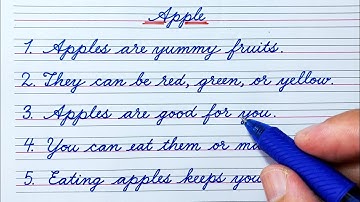 Apple
1. Apples are yummy fruits.
2. They can be red, green, or yellow.
3. Apples are good for you.
4. You can eat them or
5. Eating apples keeps you